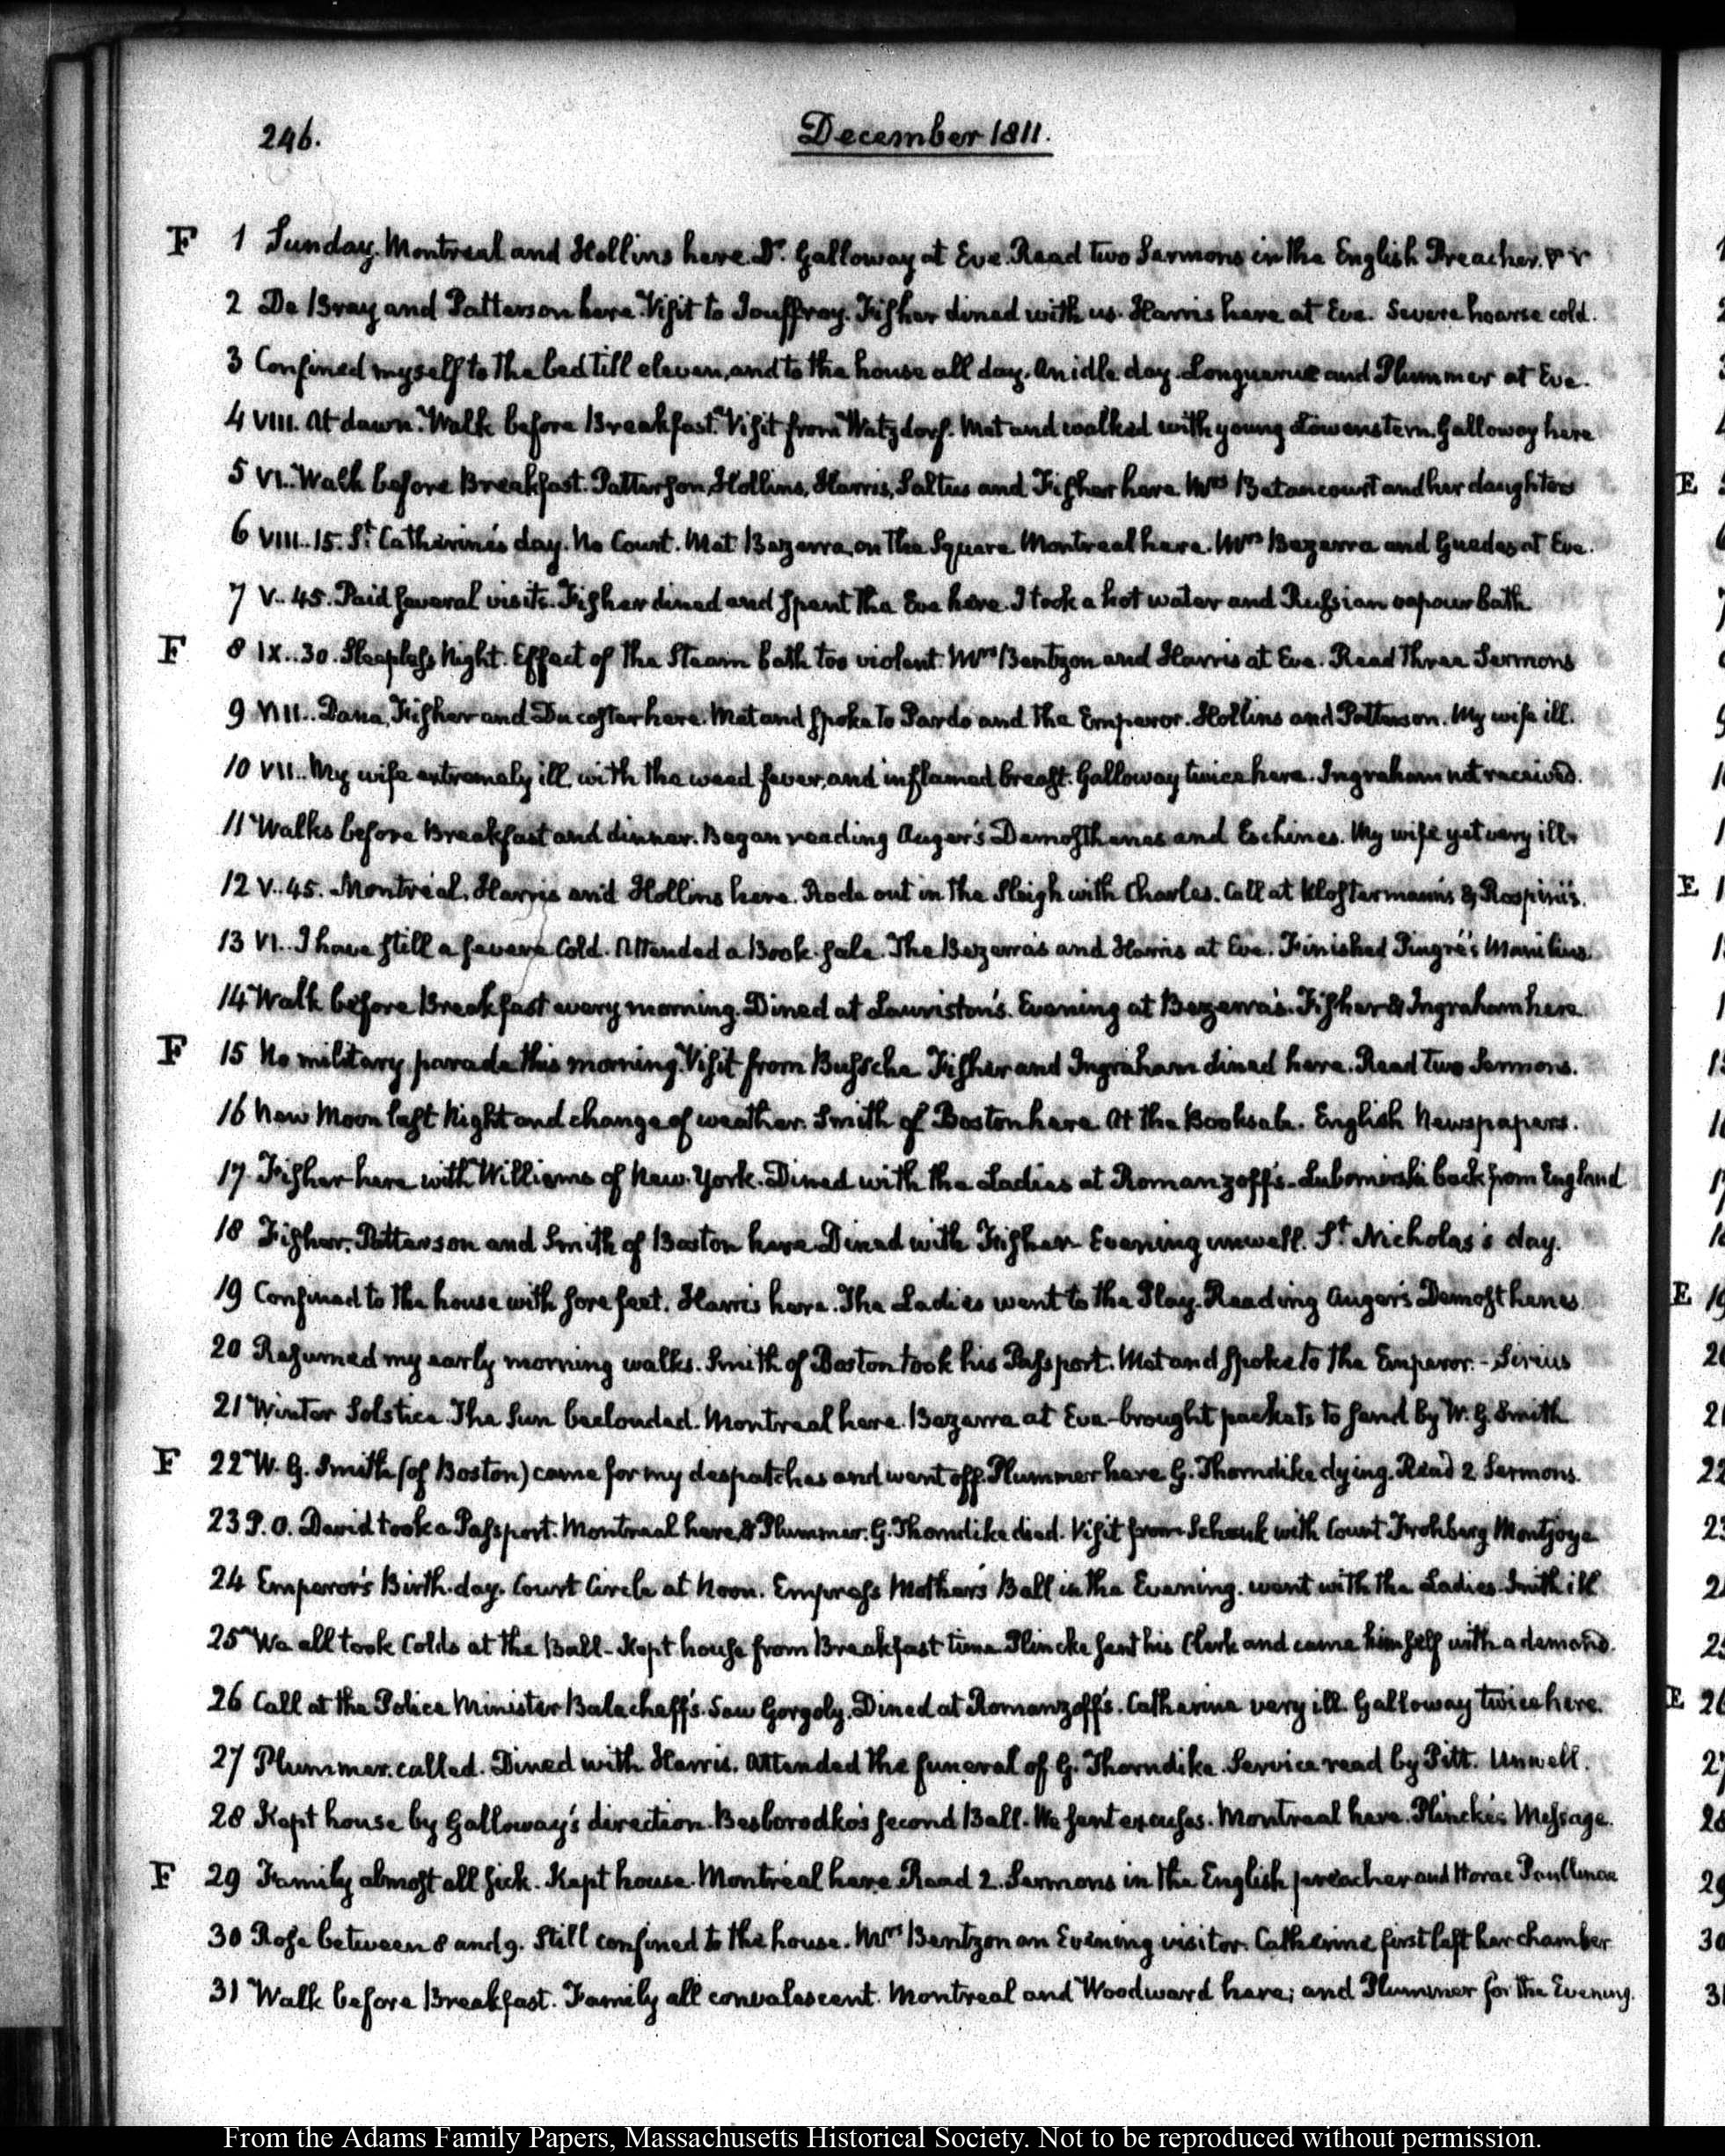 246.
December 1811.
F 1 Sunday. Montreal and Hollins here. Dr. Galloway at Eve. Read two Sermons in the English Preacher.
2 De Bray and Patterson here. Visit to Jouffroy. Fisher dined with us. Harris here at Eve. Severe hoarse cold.
3 Confined myself to the bed till eleven, and to the house all day. An idle day. Longuerue and Plummer at Eve.
4 VIII. At dawn. Walk before Breakfast. Visit from Watzdorf. Met and walked with young Löwenstern. Galloway here
5 VI. Walk before Breakfast. Patterson, Hollins, Harris, Saltus and Fisher here. Mrs Betancourt and her daughters
6 VIII..15. St. Catherine's day. No Court. Met Bezerra, on the Square. Montreal here. Mrs Bezerra and Guedes at Eve.
7 V..45. Paid several visits. Fisher dined and spent the Eve here. I took a hot water and Russian vapour bath
F 8 IX..30. Sleepless Night. Effect of the Steam bath too violent. Mrs Bentzon and Harris at Eve. Read three Sermons
9 VIII.. Dana, Fisher and Ducoster here. Met and spoke to Pardo and the Emperor. Hollins and Patterson. My wife ill.
10 VII.. My wife extremely ill, with the weed fever, and inflamed breast. Galloway twice here. Ingraham not received.
11 Walks before Breakfast and dinner. Began reading Auger's Demosthenes and Eschines. My wife yet very ill.
12 V..45. Montréal, Harris and Hollins here. Rode out in the Sleigh with Charles. Call at Klostermann's & Rospini's.
13 VI.. I have still a severe Cold. Attended a Book-sale. The Bezerra's and Harris at Eve. Finished Pingré's Manilius.
14 Walk before Breakfast every morning. Dined at Lauriston's. Evening at Bezerra's. Fisher & Ingraham here.
F 15 No military parade this morning. Visit from Bussche. Fisher and Ingraham dined here. Read two Sermons.
16 New Moon last Night and change of weather. Smith of Boston here. At the Booksale. English Newspapers.
17 Fisher here with Williams of New-York. Dined with the Ladies at Romanzoff's. Lubomirski back from England
18 Fisher, Patterson and Smith of Boston here. Dined with Fisher. Evening unwell. St Nicholas's day.
19 Confined to the house with sore feet. Harris here. The Ladies went to the Play. Reading Auger's Demosthenes
20 Resumed my early morning walks. Smith of Boston took his Passport. Met and spoke to the Emperor. - Sirius
21 Winter Solstice. The Sun beclouded. Montreal here. Bezerra at Eve - brought packets to send by W. G. Smith
F 22 W. G. Smith (of Boston) came for my despatches and went off. Plummer here G. Thorndike dying. Read 2 Sermons.
23 P. O. David took a Passport. Montreal here, & Plummer. G. Thorndike died. Visit from Schenk with Count Frohberg Montjoye
24 Emperor's Birth-day. Court Circle at Noon. Empress Mother's Ball in the Evening. went with the Ladies. Smith ill
25 We all took Colds at the Ball - Kept house from Breakfast time. Plincke sent his Clerk and came himself with a demand.
26 Call at the Police Minister Balacheff's. Saw Gorgoly. Dined at Romanzoff's. Catherine very ill. Galloway twice here.
27 Plummer called. Dined with Harris. Attended the funeral of G. Thorndike. Service read by Pitt. Unwell.
28 Kept house by Galloway's direction. Besborodko's second Ball. We sent excuses. Montreal here. Plincke's Message.
F 29 Family almost all sick. Kept house. Montréal here. Read 2. Sermons in the English preacher and Horae Paulinae
30 Rose between 8 and 9. Still confined to the house. Mrs Bentzon an Evening visitor. Catherine first left her chamber
31 Walk before Breakfast. Family all convalescent. Montreal and Woodward here; and Plummer for the Evening.
From the Adams Family Papers, Massachusetts Historical Society. Not to be reproduced without permission.